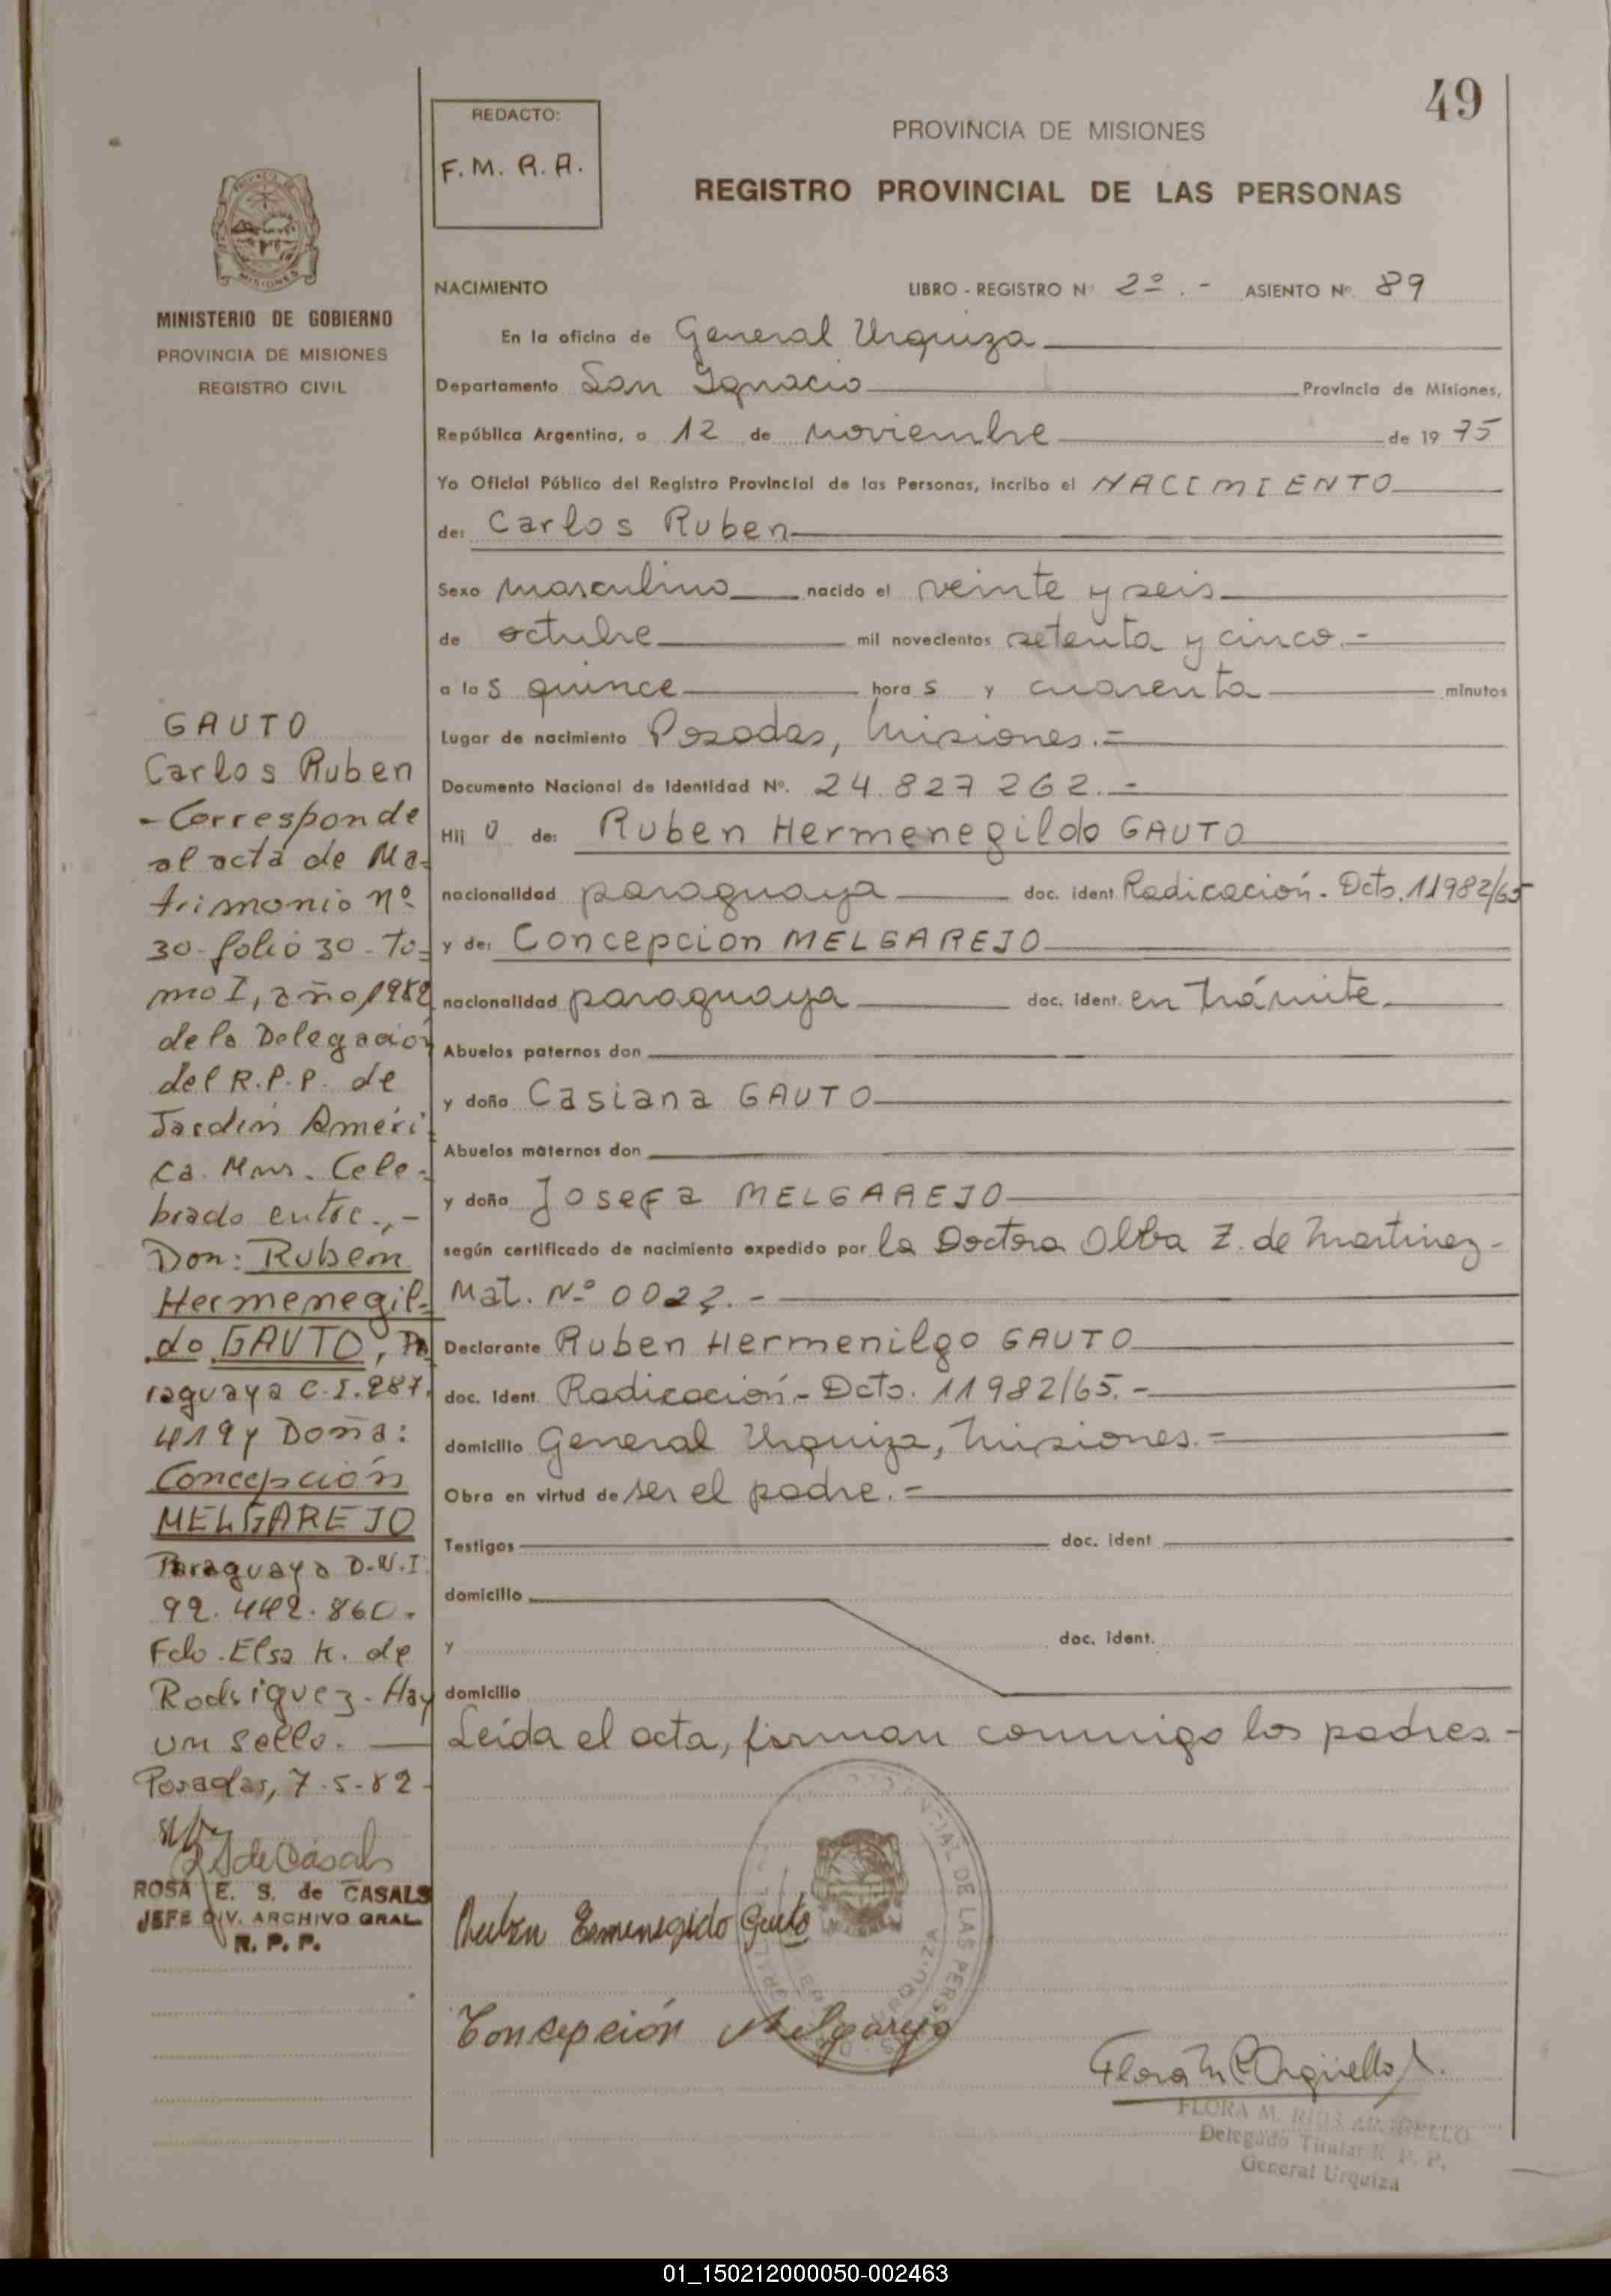 49
REDACTO:
F. M. R. A.
PROVINCIA DE MISIONES
REGISTRO PROVINCIAL DE LAS PERSONAS
MINISTERIO DE GOBIERNO
PROVINCIA DE MISIONES
REGISTRO CIVIL
NACIMIENTO LIBRO - REGISTRO Nº 2º.- ASIENTO Nº. 89
En la oficina de General Urquiza
Departamento San Ignacio Provincia de Misiones,
República Argentina, a 12 de noviembre de 1975
Yo Oficial Público del Registro Provincial de las Personas, incribo el NACIMIENTO
de: Carlos Ruben
Sexo masculino nacido el veinte y seis
de octubre mil novecientos setenta y cinco.-
a las quince horas y cuarenta minutos
Lugar de nacimiento Posadas, Misiones.=
Documento Nacional de Identidad Nº. 24.827 262.-
Hijo de: Ruben Hermenegildo GAUTO
nacionalidad paraguaya doc. ident. Radicación - Dcto. 11982/65
y de: Concepcion MELGAREJO
nacionalidad paraguaya doc. ident. en trámite
Abuelos paternos don
y doña Casiana GAUTO
Abuelos maternos don
y doña Josefa MELGAREJO
según certificado de nacimiento expedido por la Doctora Olba Z. de Martinez-
Mat. Nº
Declarante Ruben Hermenilgo GAUTO
doc. ident. Radicación - Dcto. 11982/65.-
domicilio General Urquiza, Misiones.=
Obra en virtud de ser el padre.=
Testigos doc. ident
domicilio
y doc. ident.
domicilio
Leída el acta, firman conmigo los padres-
GAUTO
Carlos Ruben
-Corresponde
al acta de Ma-
trimonio nº
30-folio 30-To-
mo I, año 1982
de la Delegación
del R.P.P. de
Jardin Améri-
ca. Mns. Cele-
brado entre.,-
Don: Rubén
Hermenegil-
do GAUTO, Pa
raguaya C.I. 287.
419 y Doña:
Concepción
MELGAREJO
Paraguaya D.N.I.
92.442.860.
Fdo. Elsa K. de
Rodriguez-Hay
un sello.
Posadas, 7.5.82
ROSA E. S. de CASALS
JEFE DIV. ARCHIVO GRAL.
R. P. P.
Ruben Esmenegido Gauto
Concepción Melgarejo
Flora M R Argüello
FLORA M. RIOS ARGÜELLO
Delegado Titular R. P. P.
General Urquiza
01_150212000050-002463